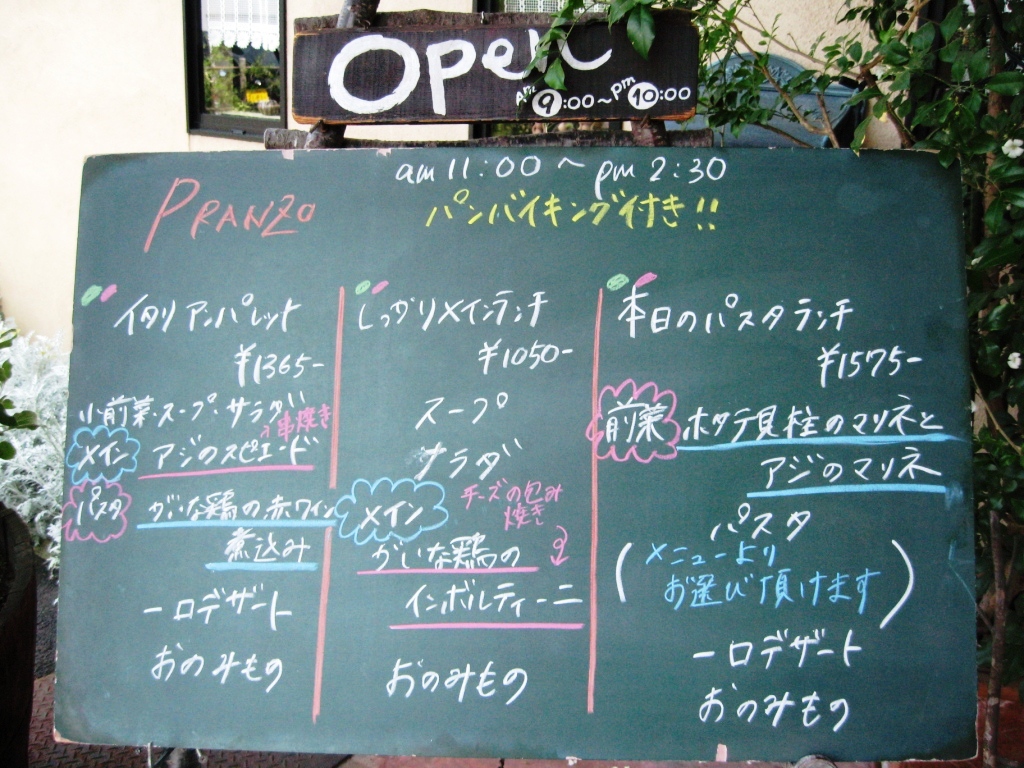 Open
Am 9:00~pm 10:00
am 11:00 ~ pm 2:30
PRANZO
パンバイキング付き!!
イタリアンパレット
¥1365-
小前菜・スープ・サラダ
串焼き
メイン アジのスピエド
パスタ がいな鶏の赤ワイン
煮込み
一口デザート
おのみもの
しっかりメインランチ
¥1050-
スープ
サラダ
メイン
チーズの包み
焼き
がいな鶏の
インボルティーニ
おのみもの
本日のパスタランチ
¥1575-
前菜 ホタテ貝柱のマリネと
アジのマリネ
パスタ
(メニューより
お選び頂けます)
一口デザート
おのみもの